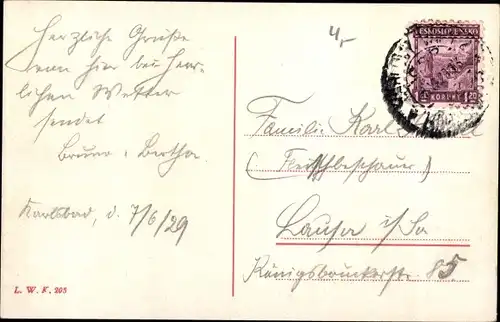 Herzliche Grüße
von hier bei herr-
lichen Wetter
sendet
Bruno & Bertha.
Karlsbad, d. 7/6/29
L. W. K. 205
4,-
ČESKOSLOVENSKO
KORUNY 1.20
Familie Karl
(Fleischbeschauer)
Lausa i/Sa
Königsbrückerstr. 85